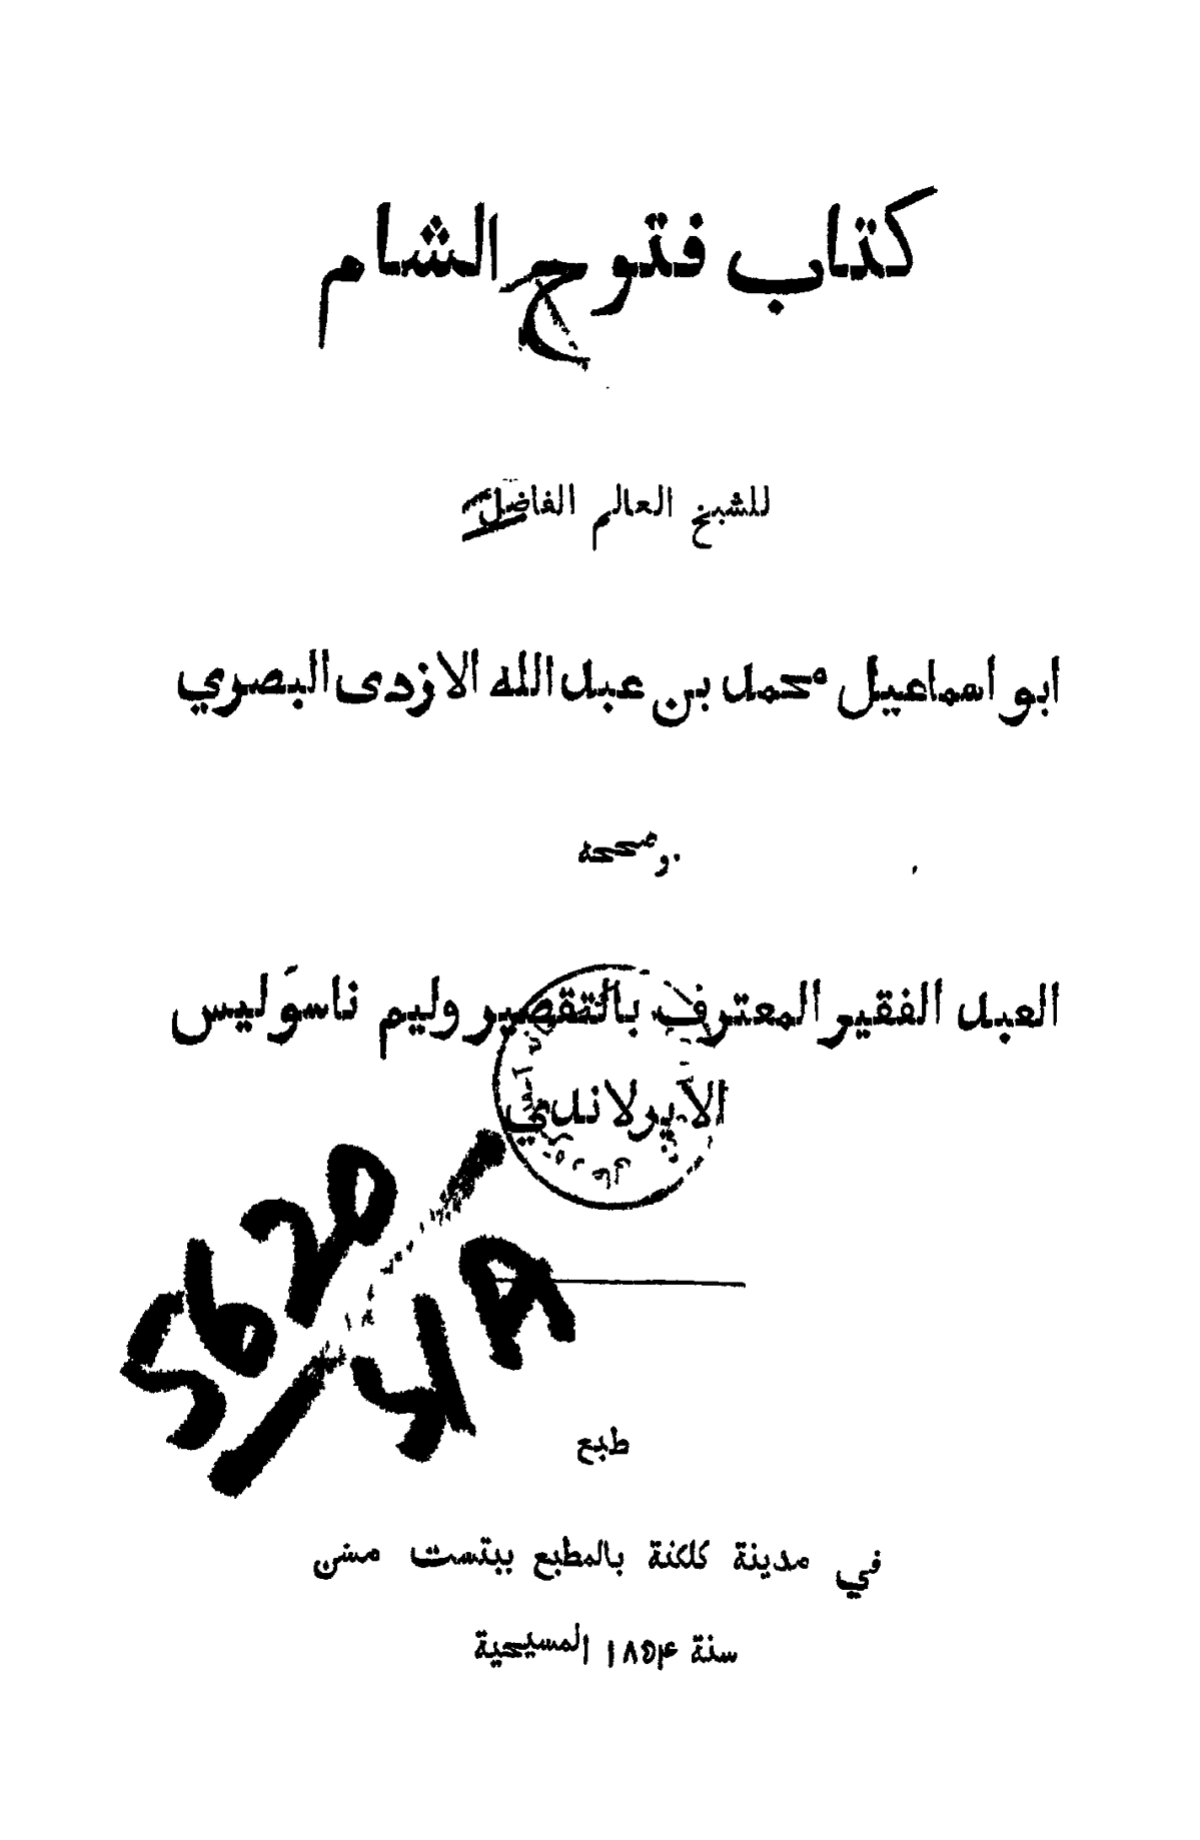 كتاب فتوح الشام
للشيخ العالم الفاضل
ابو اسماعيل محمد بن عبد الله الازدى البصري
وصححه
العبد الفقير المعترف بالتقصير وليم ناسوَليس
الآيرلاندي
5620
طبع
في مدينة كلكتة بالمطبع ببتست مشن
سنة ١٨٥۴ المسيحية